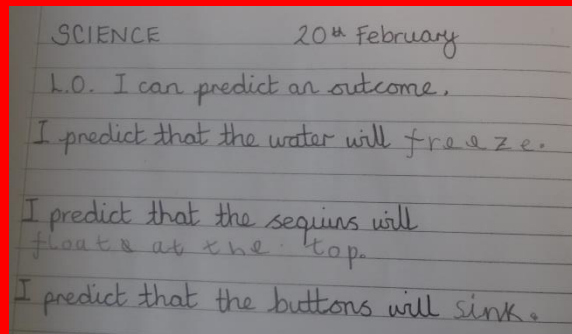 SCIENCE 20th February
L.O. I can predict an outcome.
I predict that the water will freeze.
I predict that the sequins will
floats at the top.
I predict that the buttons will sink.